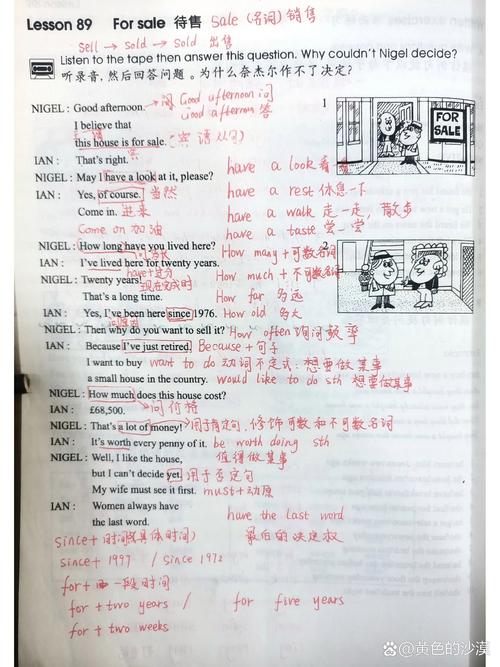 Lesson 89 For sale 待售 Sale (名词) 销售
sell → sold → sold 出售
Listen to the tape then answer this question. Why couldn't Nigel decide?
听录音,然后回答问题。为什么奈杰尔作不了决定?
NIGEL: Good afternoon. →问 Good afternoon 问
I believe that Good afternoon 答
this house is for sale. (宾语从句)
IAN: That's right.
NIGEL: May I have a look at it, please? have a look 看一看
IAN: Yes, of course. 当然 have a rest 休息一下
Come in. 进来 have a walk 走一走, 散步
Come on 加油 have a taste 尝一尝
NIGEL: How long have you lived here? How many + 可数名词
问多长
IAN: I've lived here for twenty years. How much + 不可数名词
have+过分
NIGEL: Twenty years! 现在完成时 How far 多远
That's a long time.
IAN: Yes, I've been here since 1976. How old 多大
NIGEL: Then why do you want to sell it? How often 询问频率
IAN: Because I've just retired. Because + 句子
I want to buy want to do 动词不定式: 想要做某事
a small house in the country. would like to do sth 想要做某事
NIGEL: How much does this house cost?
IAN: £68,500. →问价格
NIGEL: That's a lot of money! →用于肯定句, 修饰可数和不可数名词
IAN: It's worth every penny of it. be worth doing sth
NIGEL: Well, I like the house, 值得做某事
but I can't decide yet. 用于否定句
My wife must see it first. must + 动原
IAN: Women always have
the last word. have the last word
since + 时间点(具体时间) 最后的决定权
since + 1997 / since 1972
for + 一段时间
for + two years / for five years
for + two weeks
1
FOR SALE
2
@黄色的沙漠